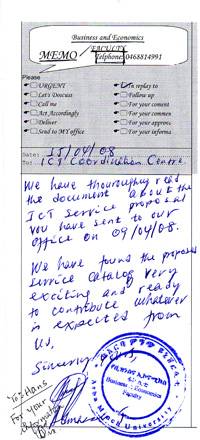 Business and Economics
MEMO
FACULTY
Telphone: 0468814991
Please
URGENT
In replay to
Let's Doscuss
Follow up
Call me
For your coment
Act Accordingly
For your commen
Deliver
For your approva
Send to MY office
For your informa
Date: 15/04/08
To: ICT Coordination Centre.
We have thouroughly read
the document about the
ICT service proposal
you have sent to our
office on 09/04/08.
We have found the proposed
service catalog very
exciting and ready
to contribute whatever
is expected from
us,
Sincerely yours,
To: Hans
For your
information
Business & Economics
Faculty
Arba Minch University